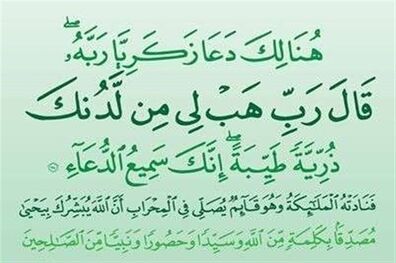 هُنَالِكَ دَعَا زَكَرِيَّا رَبَّهُۥ ۖ
قَالَ رَبِّ هَبْ لِى مِن لَّدُنكَ
ذُرِّيَّةً طَيِّبَةً ۖ إِنَّكَ سَمِيعُ ٱلدُّعَآءِ ٣٨
فَنَادَتْهُ ٱلْمَلَٰٓئِكَةُ وَهُوَ قَآئِمٌ يُصَلِّى فِى ٱلْمِحْرَابِ أَنَّ ٱللَّهَ يُبَشِّرُكَ بِيَحْيَىٰ
مُصَدِّقًۢا بِكَلِمَةٍ مِّنَ ٱللَّهِ وَسَيِّدًا وَحَصُورًا وَنَبِيًّا مِّنَ ٱلصَّٰلِحِينَ